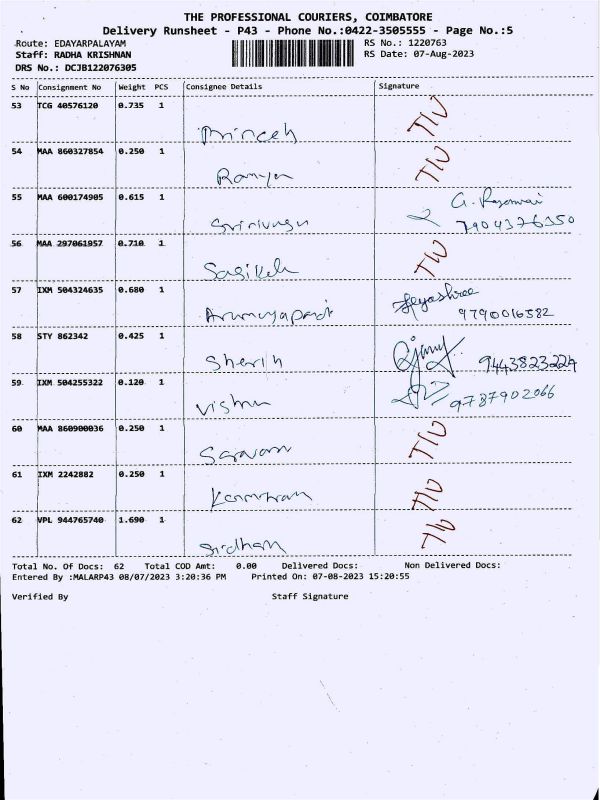 THE PROFESSIONAL COURIERS, COIMBATORE
Delivery Runsheet - P43 - Phone No.:0422-3505555 - Page No.:5
Route: EDAYARPALAYAM RS No.: 1220763
Staff: RADHA KRISHNAN RS Date: 07-Aug-2023
DRS No.: DCJB122076305
S No Consignment No Weight PCS Consignee Details Signature
53 TCG 40576120 0.735 1
54 MAA 860327854 0.250 1 Ramya
55 MAA 600174905 0.615 1 7904376350
56 MAA 297061957 0.710 1
57 IXM 504324635 0.680 1 Jeyashree
9790016582
58 STY 862342 0.425 1 9443823224
59 IXM 504255322 0.120 1 Vishnu 9787902066
60 MAA 860900036 0.250 1
61 IXM 2242882 0.250 1
62 VPL 944765740 1.690 1
Total No. Of Docs: 62 Total COD Amt: 0.00 Delivered Docs: Non Delivered Docs:
Entered By :MALARP43 08/07/2023 3:20:36 PM Printed On: 07-08-2023 15:20:55
Verified By Staff Signature